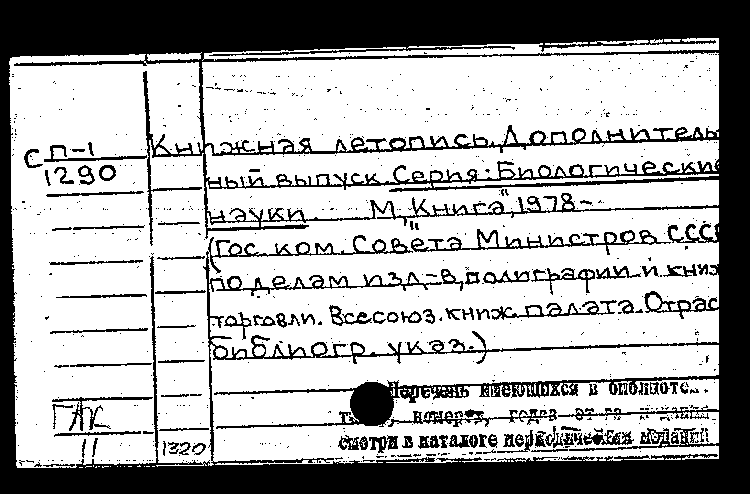 СП-1 Книжная летопись. Дополнитель
1290 ный выпуск. Серия: Биологические
науки. М., "Книга", 1978-
(Гос. ком. Совета Министров СССР
по делам изд-в, полиграфии и книж
торговли. Всесоюз. книж. палата. Отрас
библиогр. указ.)
Перечень имеющихся в библиоте
номера, годов
смотри в каталоге периодических изданий
ГАК
11 1320